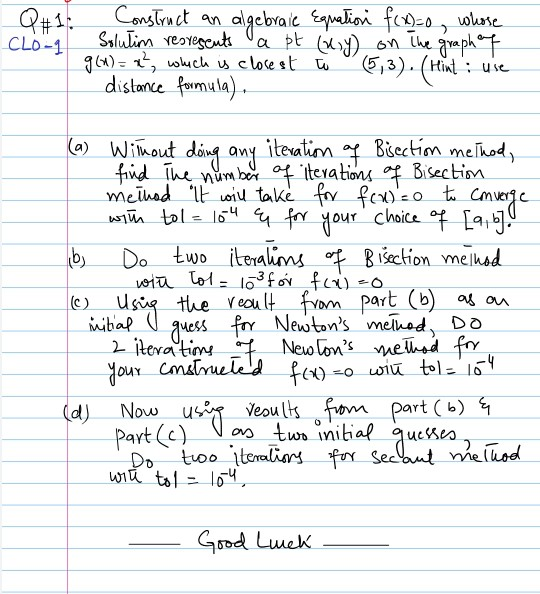 Q#1: Construct an algebraic Equation f(x)=0, whose
CLO-1 Solution represents a pt (x,y) on the graph of
g(x) = x², which is closest to (5,3). (Hint: use
distance formula).
(a) Without doing any iteration of Bisection method,
find the number of iterations of Bisection
method it will take for f(x)=0 to converge
with tol = 10⁻⁴ & for your choice of [a,b].
(b) Do two iterations of Bisection method
with tol = 10⁻³ for f(x) = 0
(c) Using the result from part (b) as an
initial guess for Newton's method, DO
2 iterations of Newton's method for
your constructed f(x)=0 with tol= 10⁻⁴
(d) Now using results from part (b) &
part (c) as two initial guesses,
Do two iterations for secant method
with tol = 10⁻⁴.
Good Luck